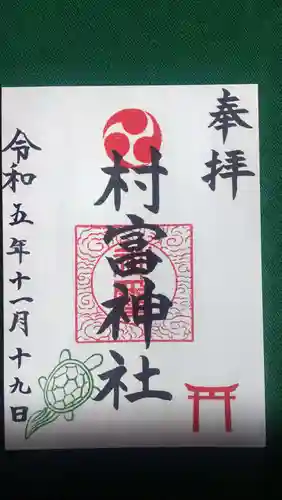 奉拝
村富神社
令和五年十一月十九日